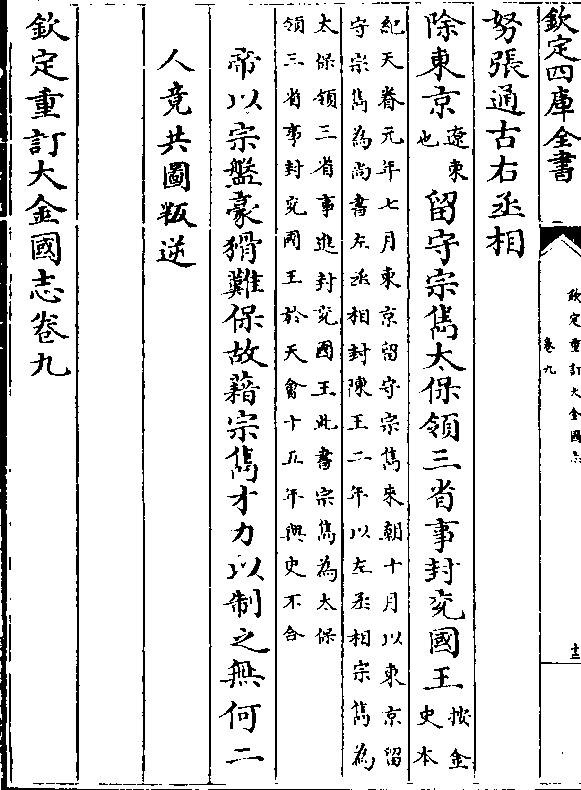 欽定四庫全書
欽定重訂大金國志
卷九
十三
努張通古右丞相
除東京遼東也留守宗雋太保領三省事封兖國王按金史本
紀天眷元年七月東京留守宗雋來朝十月以東京留
守宗雋為尚書左丞相封陳王二年以左丞相宗雋為
太保領三省事進封兖國王此書宗雋為太保
領三省事封兖國王於天會十五年與史不合
帝以宗盤豪猾難保故藉宗雋才力以制之無何二
人竟共圖叛逆
欽定重訂大金國志卷九